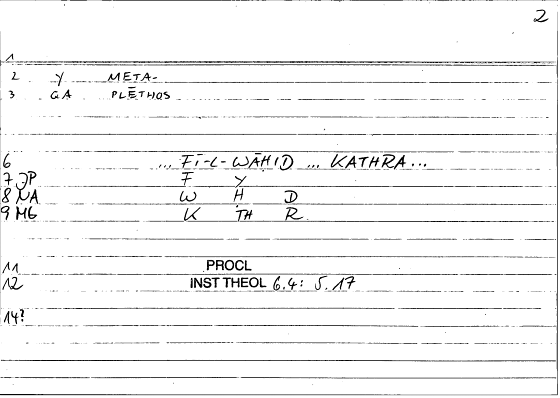 2
1
2 Y META-
3 GA PLĒTHOS
6 ... FĪ-L-WĀḤID ... KATHRA...
7 JP F Y
8 NA W Ḥ D
9 MG K TH R
11 PROCL
12 INST THEOL 6.4: 5.17
14?